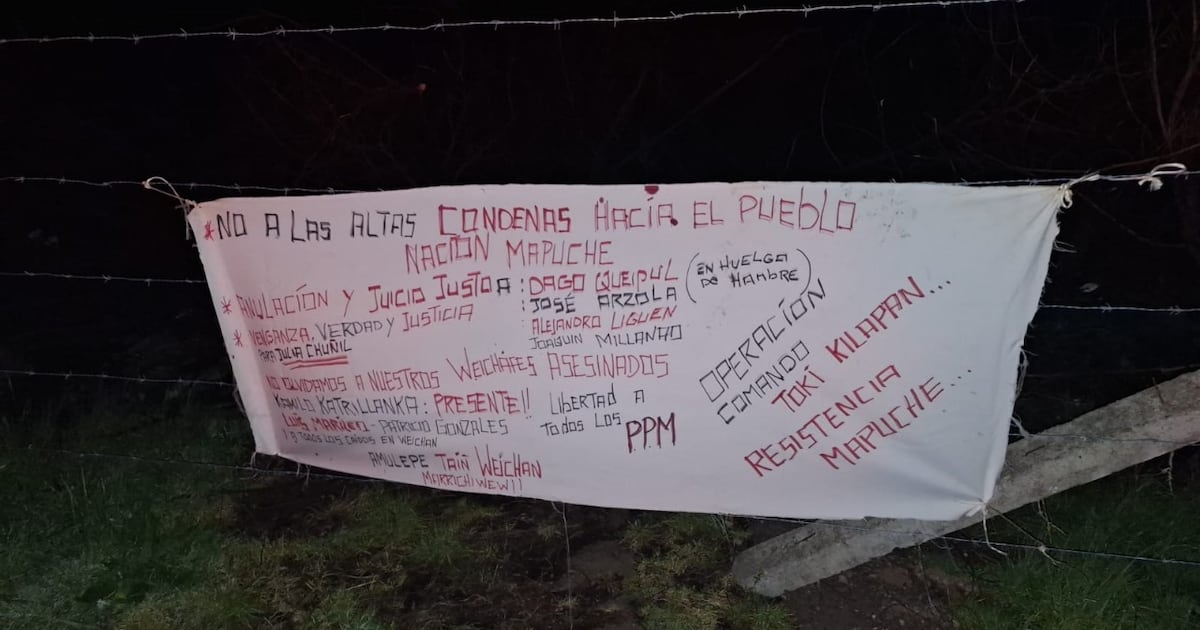 *NO A LAS ALTAS CONDENAS HACÍA EL PUEBLO
NACIÓN MAPUCHE
* ANULACIÓN Y JUICIO JUSTO A : DAGO QUEIPUL (EN HUELGA DE HAMBRE)
: JOSÉ ARZOLA
: ALEJANDRO LIGUEN
JOAQUIN MILLANAO
* VENGANZA, VERDAD Y JUSTICIA
PARA JULIA CHUÑIL
NO OLVIDAMOS A NUESTROS WEICHAFES ASESINADOS
KAMILO KATRILLANKA: PRESENTE!!
LUIS MARILEO - PATRICIO GONZALES
Y TODOS LOS CAÍDOS EN WEICHAN
AMULEPE TAIÑ WEICHAN
MARRICHIWEW!!
LIBERTAD A
TODOS LOS PPM
OPERACIÓN
COMANDO
TOKÍ KILAPAN...
RESISTENCIA
MAPUCHE...